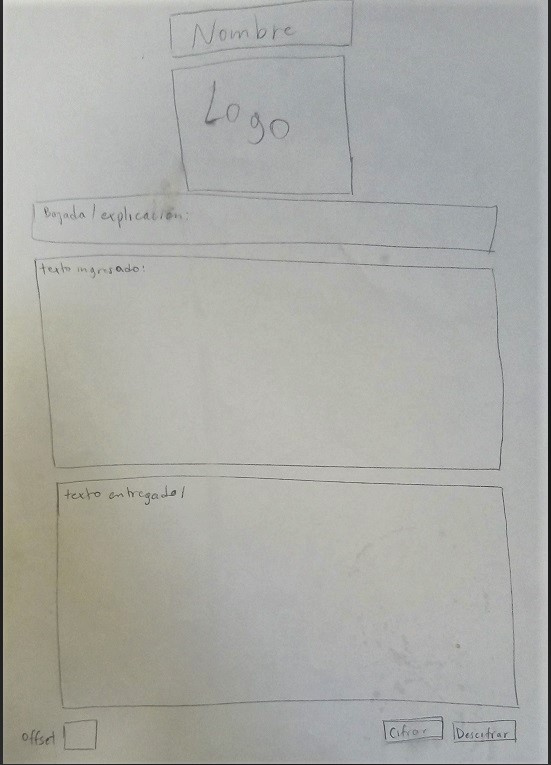 Nombre
Logo
Bajada/explicación:
texto ingresado:
texto entregado/
offset
Cifrar
Descifrar